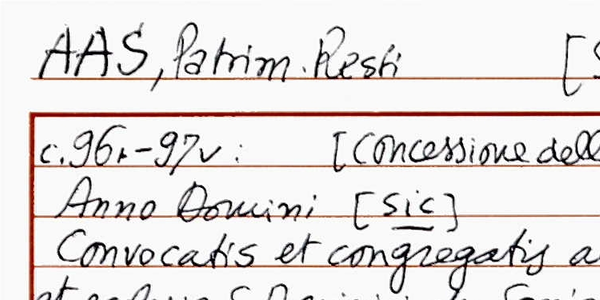 AAS, Patrim. Resti [S
c. 96r-97v: [Concessione dell
Anno Domini [sic]
Convocatis et congregatis a
et